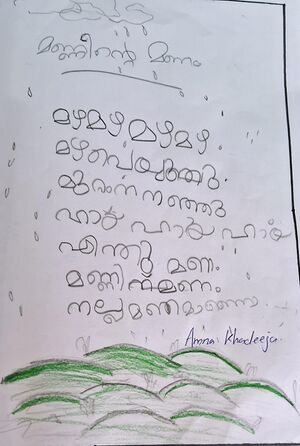 മണ്ണിന്റെ മണം
മഴമഴ മഴമഴ
മഴ പെയ്തു
മുറ്റം നനഞ്ഞു
ഹായ് ഹായ് ഹായ്
എന്തു മണം
മണ്ണിൻമണം
നല്ല മണമാണെന്നോ
Amna Khadeeja